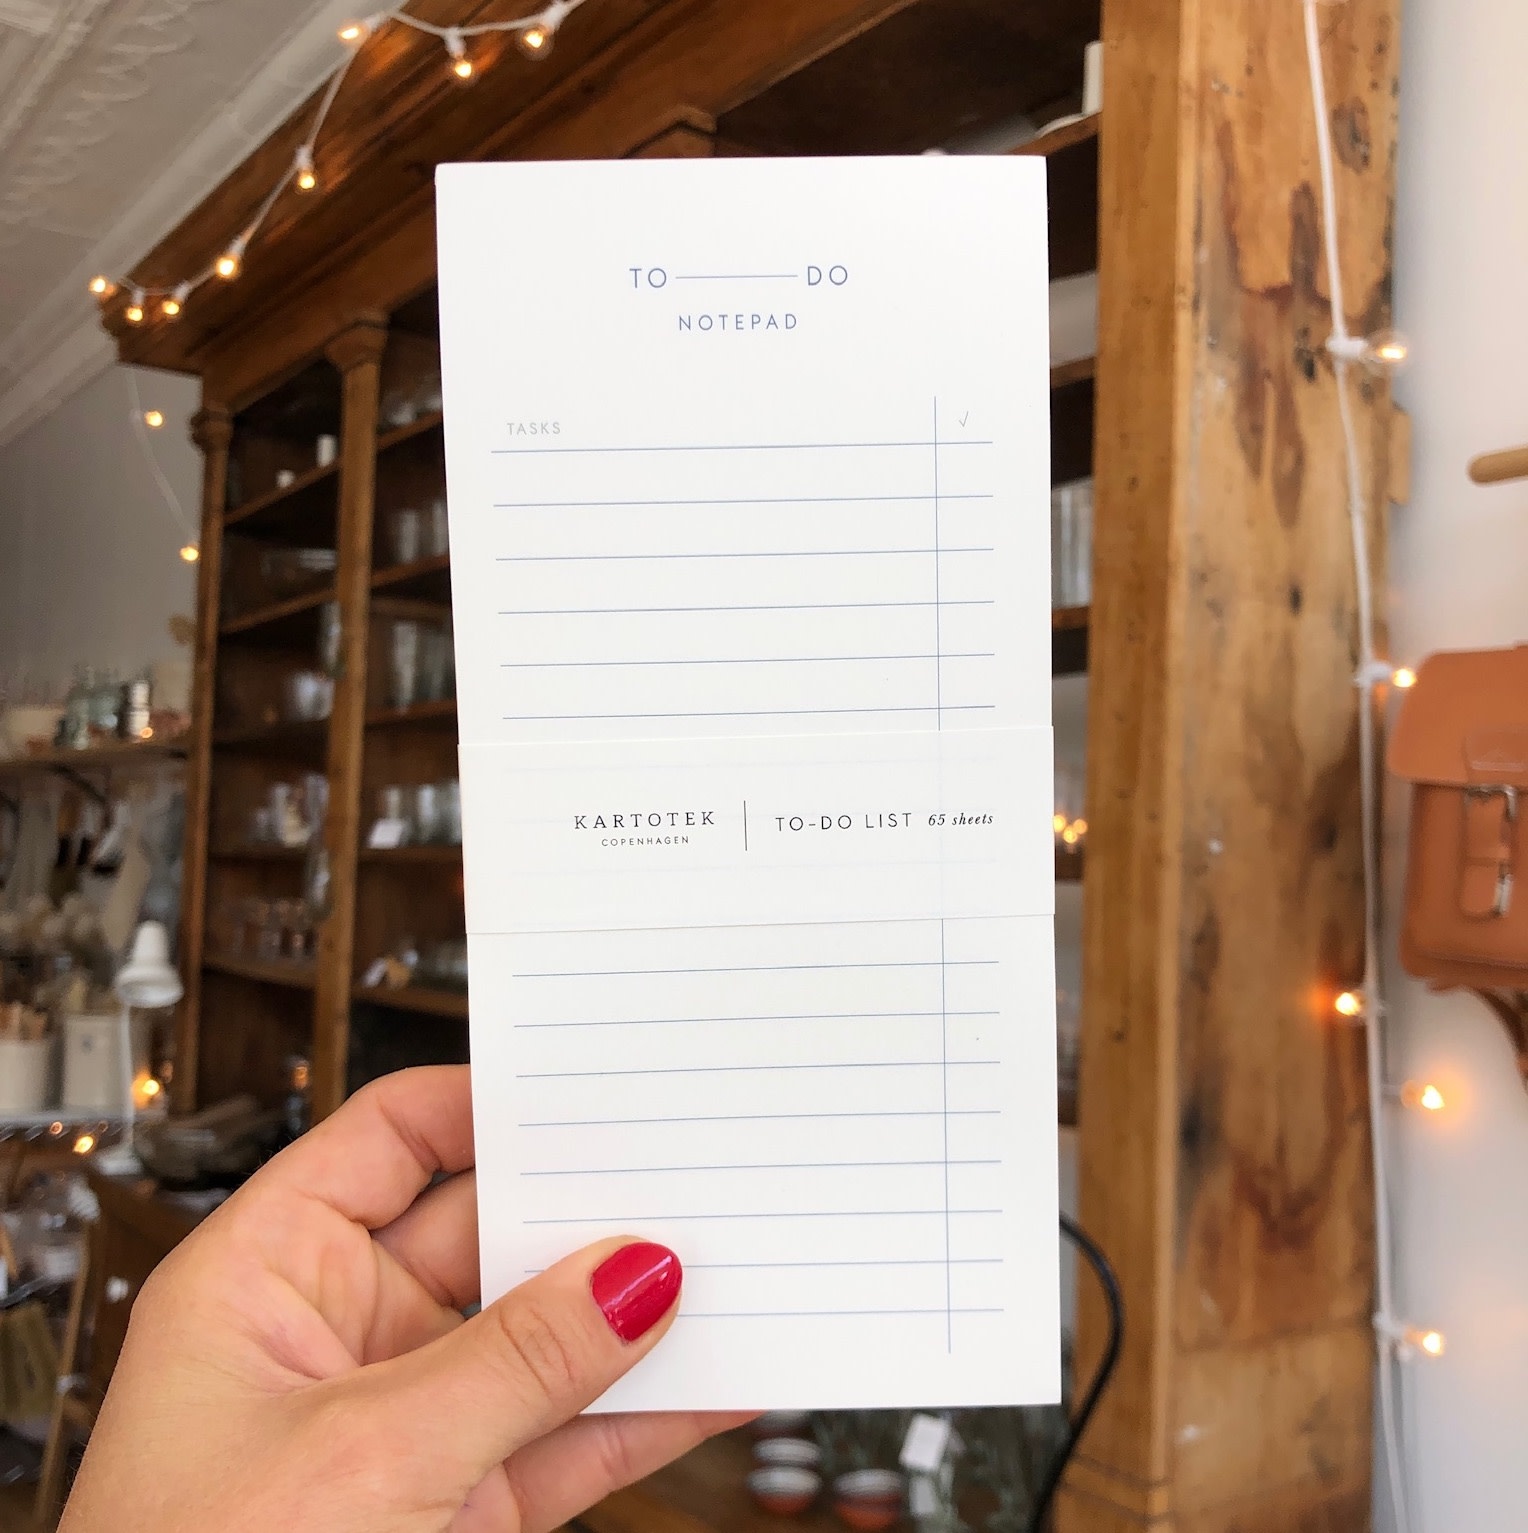 TO DO
NOTEPAD
TASKS ✓
KARTOTEK
COPENHAGEN
TO-DO LIST 65 sheets